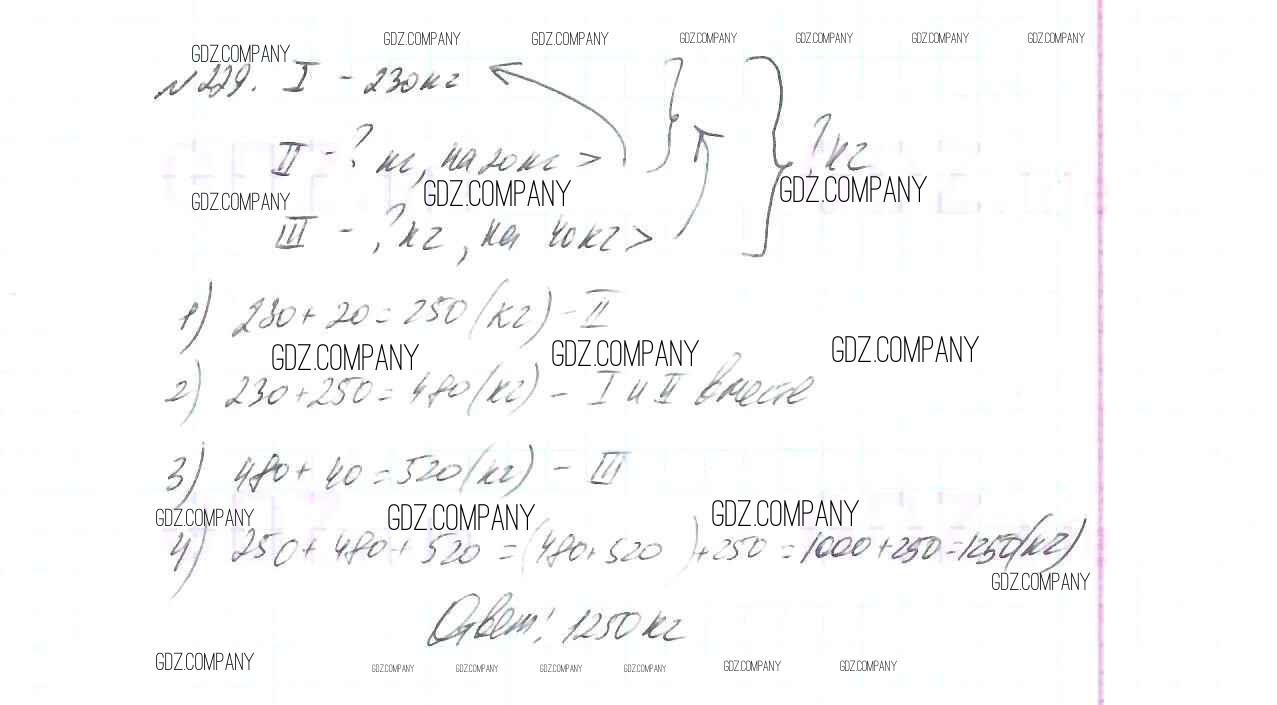 GDZ.COMPANY GDZ.COMPANY GDZ.COMPANY GDZ.COMPANY GDZ.COMPANY GDZ.COMPANY GDZ.COMPANY
№ 229. I - 230 кг
II - ? кг, на 20 кг > ? кг
GDZ.COMPANY GDZ.COMPANY GDZ.COMPANY
III - ? кг, на 40 кг >
1) 230 + 20 = 250 (кг) - II
GDZ.COMPANY GDZ.COMPANY GDZ.COMPANY
2) 230 + 250 = 480 (кг) - I и II вместе
3) 480 + 40 = 520 (кг) - III
GDZ.COMPANY GDZ.COMPANY GDZ.COMPANY
4) 250 + 480 + 520 = (480 + 520) + 250 = 1000 + 250 = 1250 (кг)
GDZ.COMPANY
Ответ: 1250 кг
GDZ.COMPANY GDZ.COMPANY GDZ.COMPANY GDZ.COMPANY GDZ.COMPANY GDZ.COMPANY GDZ.COMPANY